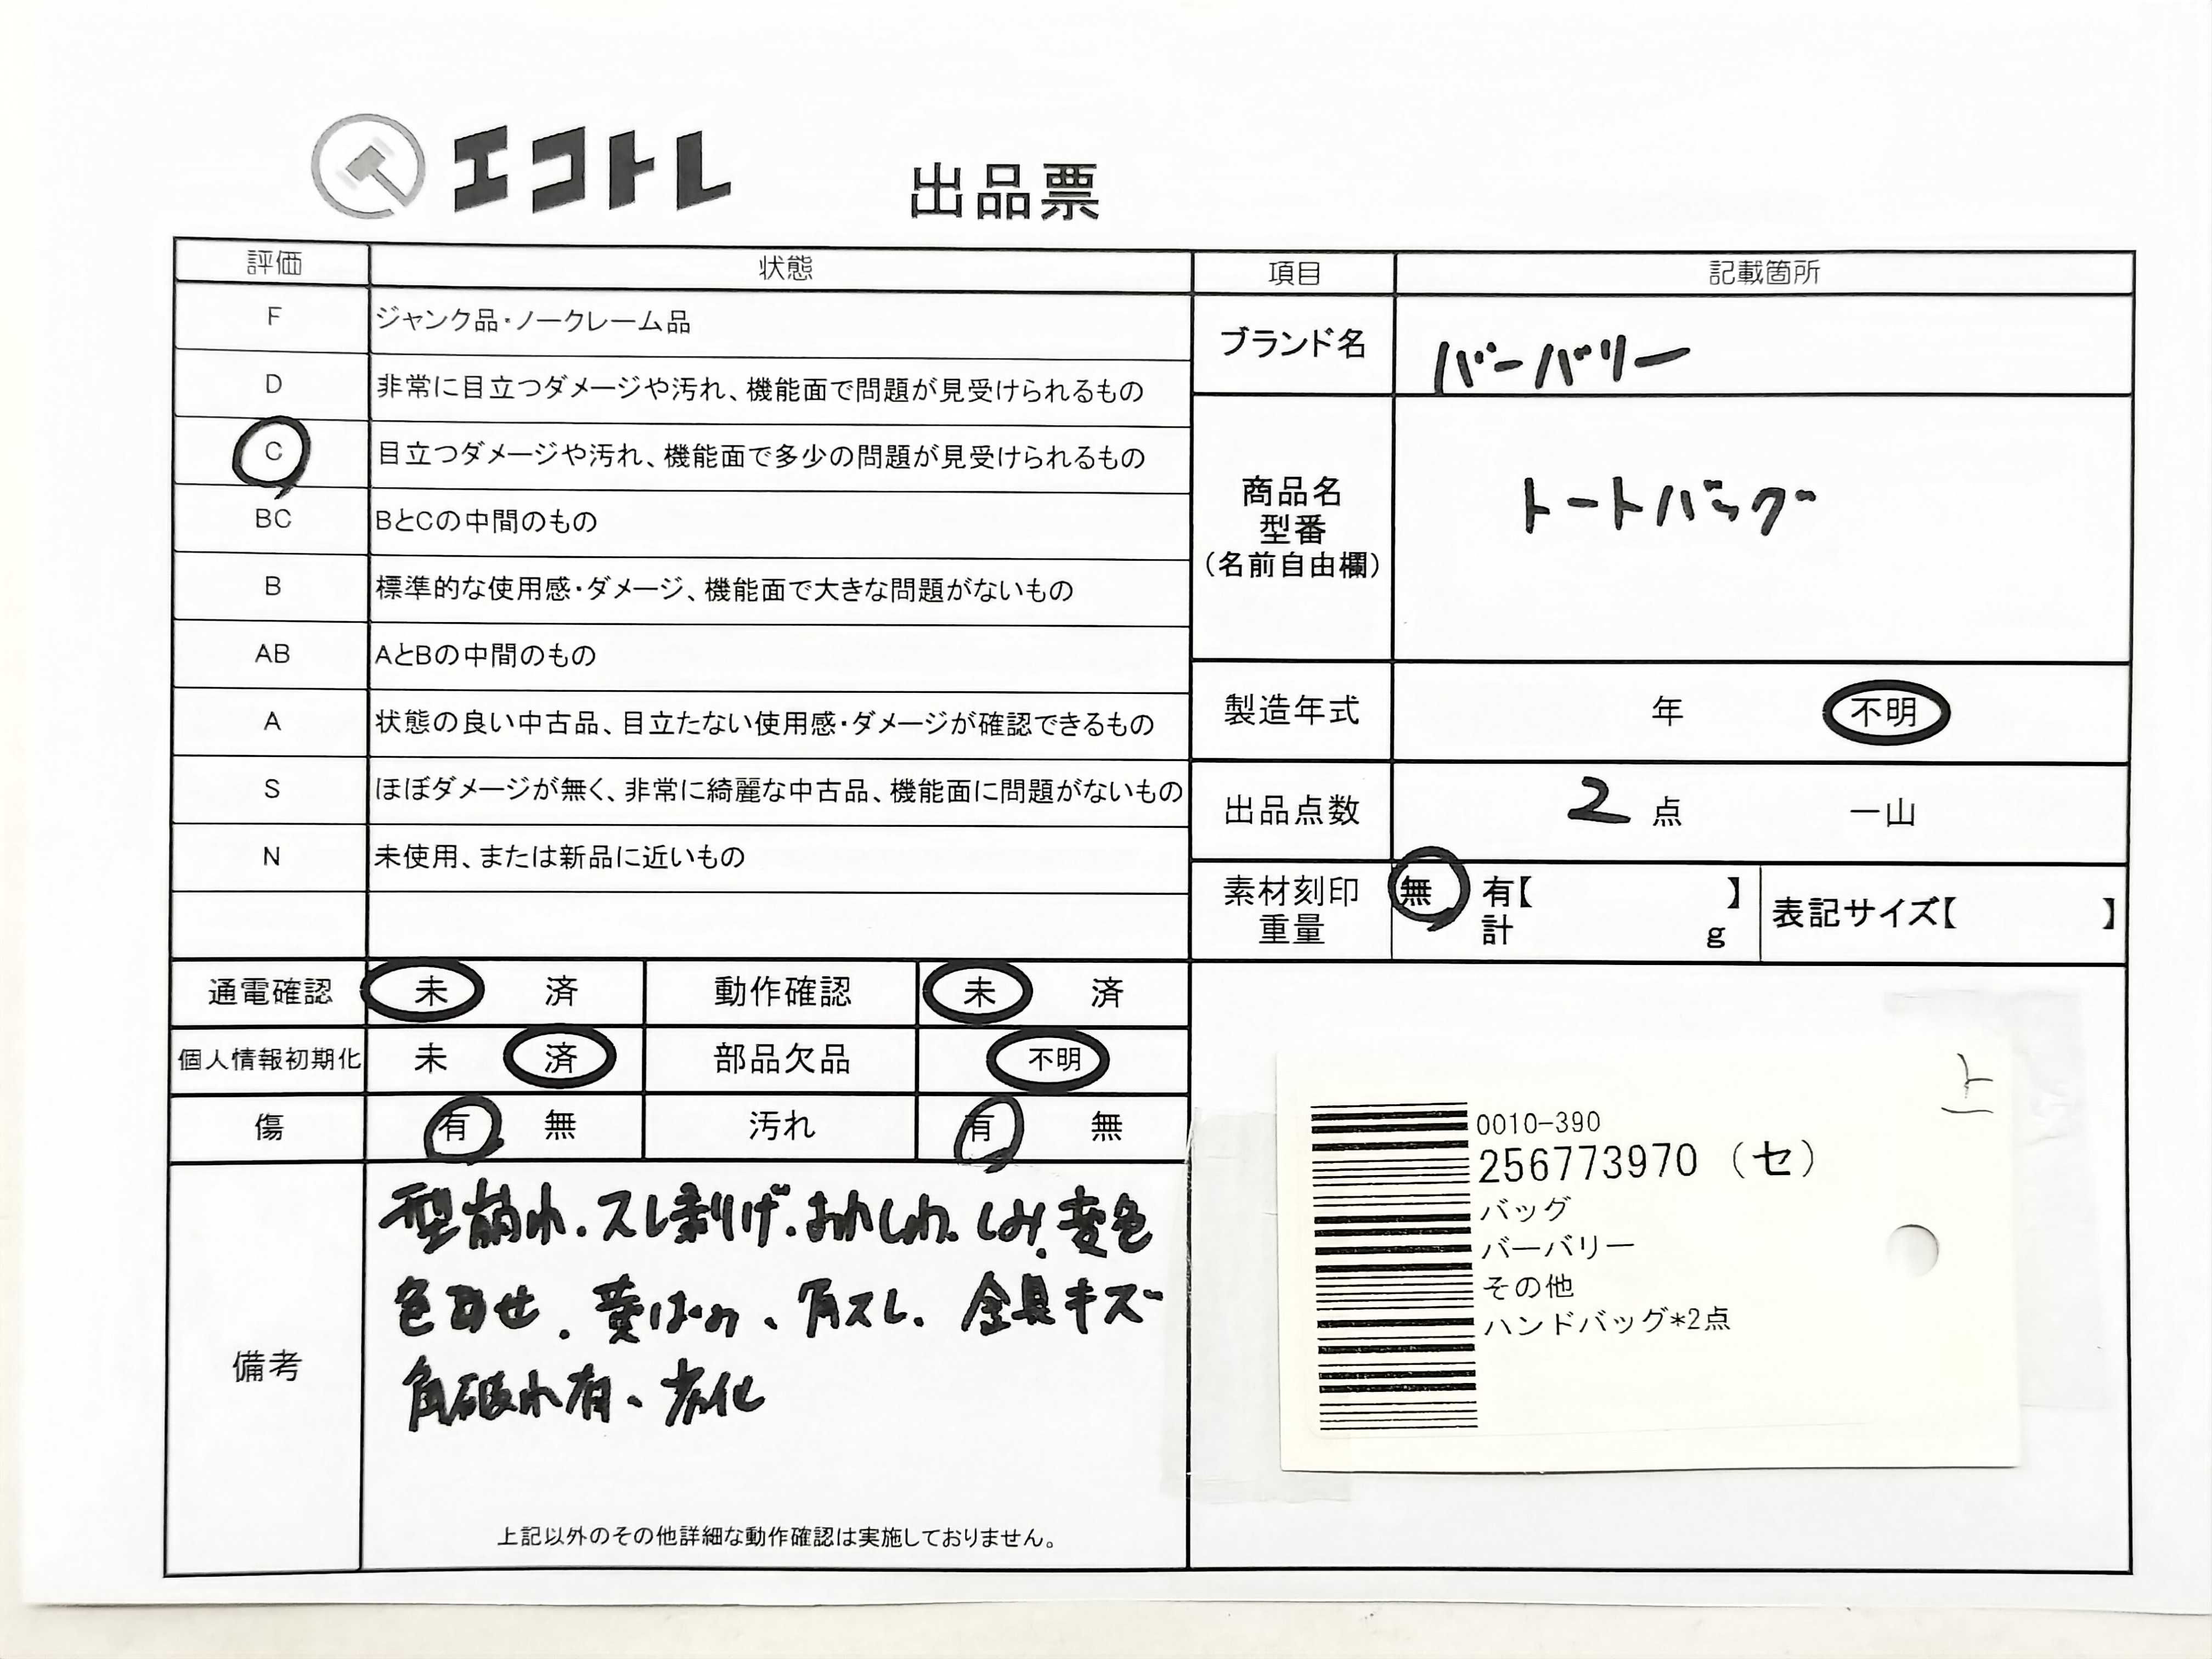 エコトレ 出品票
評価 状態
F ジャンク品・ノークレーム品
D 非常に目立つダメージや汚れ、機能面で問題が見受けられるもの
C 目立つダメージや汚れ、機能面で多少の問題が見受けられるもの
BC BとCの中間のもの
B 標準的な使用感・ダメージ、機能面で大きな問題がないもの
AB AとBの中間のもの
A 状態の良い中古品、目立たない使用感・ダメージが確認できるもの
S ほぼダメージが無く、非常に綺麗な中古品、機能面に問題がないもの
N 未使用、または新品に近いもの
通電確認 未 済 動作確認 未 済
個人情報初期化 未 済 部品欠品 不明
傷 有 無 汚れ 有 無
備考
型崩れ.スレ剥げ.おれしわ.しみ.変色
色あせ.黄ばみ、角スレ、金具キズ
角破れ有、劣化
上記以外のその他詳細な動作確認は実施しておりません。
項目 記載箇所
ブランド名 バーバリー
商品名
型番
(名前自由欄)
トートバッグ
製造年式 年 不明
出品点数 2 点 一山
素材刻印 無 有【 】
重量 計 g
表記サイズ【 】
上
0010-390
256773970 (セ)
バッグ
バーバリー
その他
ハンドバッグ*2点